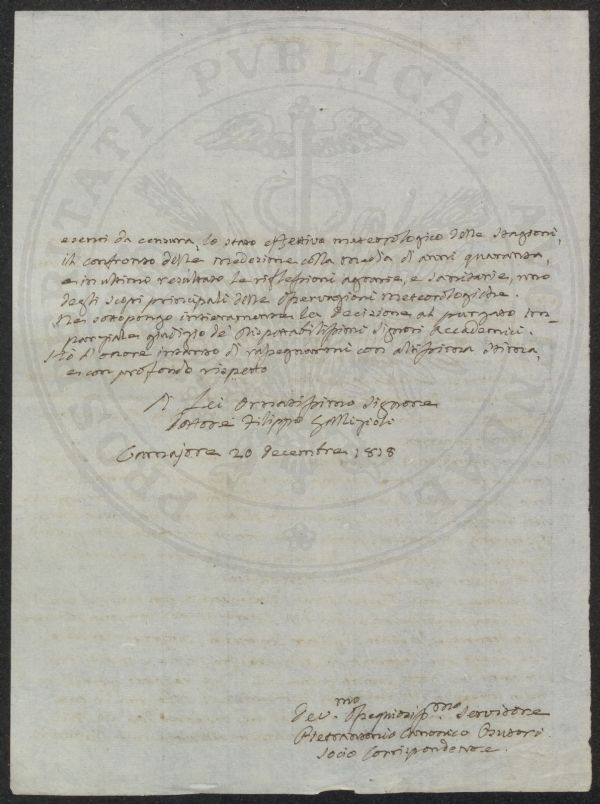 PROSPERITATI PVBLICAE AVGENDAE
esenti da censura, lo stato effettivo meteorologico delle stagioni,
il confronto delle medesime colla media di anni quaranta,
e in ultimo resultato le riflessioni agrarie, e sanitarie, uno
degli scopi principali delle osservazioni meteorologiche.
Ne sottopongo intieramente la decisione al purgato im-
parziale giudizio de' rispettabilissimi Signori Accademici.
Ho l'onore intanto di rassegnarmi con altissima stima,
e con profondo rispetto
A Lei Ornatissimo Signore
Dottore Filippo Gallizioli
Camajore 20 Decembre 1818
Dev.mo Ossequiosiss.mo Servidore
Pietrantonio Canonico Butori
Socio Corrispondente.